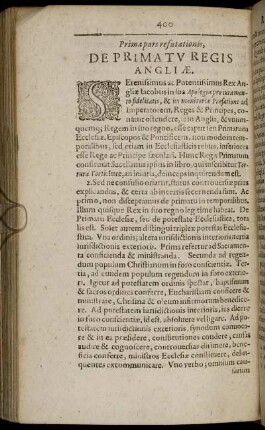 400
Prima pars refutationis,
DE PRIMATV REGIS
ANGLIÆ.
SErenissimus ac Potentissimus Rex An-
gliæ Iacobus in sua Apologia pro iuramen-
to fidelitatis, & in monitoria Præfatione ad
Imperatorem, Reges & Principes, co-
natur ostendere, se in Anglia, & vnum-
quemq; Regem in suo regno, esse caput seu Primatum
Ecclesiæ, Episcopos & Pontificem, non modo in tem-
poralibus, sed etiam in Ecclesiasticis rebus, inferiores
esse Rege ac Principe seculari. Hunc Regis Primatum
confirmat Sacellanus ipsius in libro, qui inscribitur
Tortura Torti: sitne, an iniuria, deinceps inquirendum est.
2. Sed ne confusio oriatur, status controuersiæ prius
explicandus, & certa ab incertis secernenda sunt. Ac
primo, non disceptamus de primatu in temporalibus,
illum quisque Rex in suo regno legitime habeat. De
Primatu Ecclesiæ, siue de potestate Ecclesiastica, tota
lis est. Solet autem distingui triplex potestas Ecclesia-
stica. Vna ordinis; altera iurisdictionis interioris; tertia
iurisdictionis exterioris. Prima refertur ad Sacramenta
conficienda & ministranda. Secunda ad regen-
dum populum Christianum in foro conscientiæ. Ter-
tia, ad eundem populum regendum in foro exterio-
re. Igitur ad potestatem ordinis spectat, baptismum
& sacros ordines conferre, Eucharistiam conficere &
ministrare, Chrisma & oleum infirmorum benedice-
re. Ad potestatem iurisdictionis interioris, ius dicere
in foro conscientiæ, id est, absoluere vel ligare. Ad po-
testatem iurisdictionis exterioris, synodum conuoca-
re & in ea præsidere, constitutiones condere, causas
audire & cognoscere, controuersias dirimere, bene-
ficia conferre, ministros Ecclesiæ constituere, delin-
quentes excommunicare. Vno verbo; omnium cau-
sarum